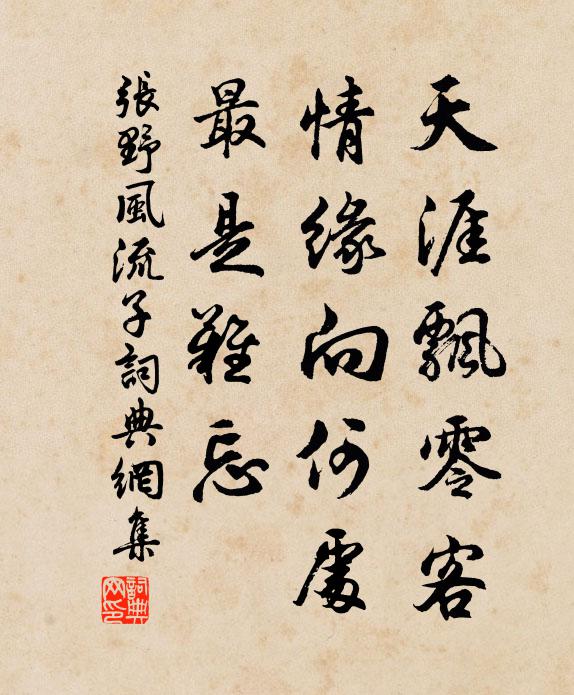 天涯飄零客
情緣向何處
最是難忘
張野風流子詞典網集
詞典